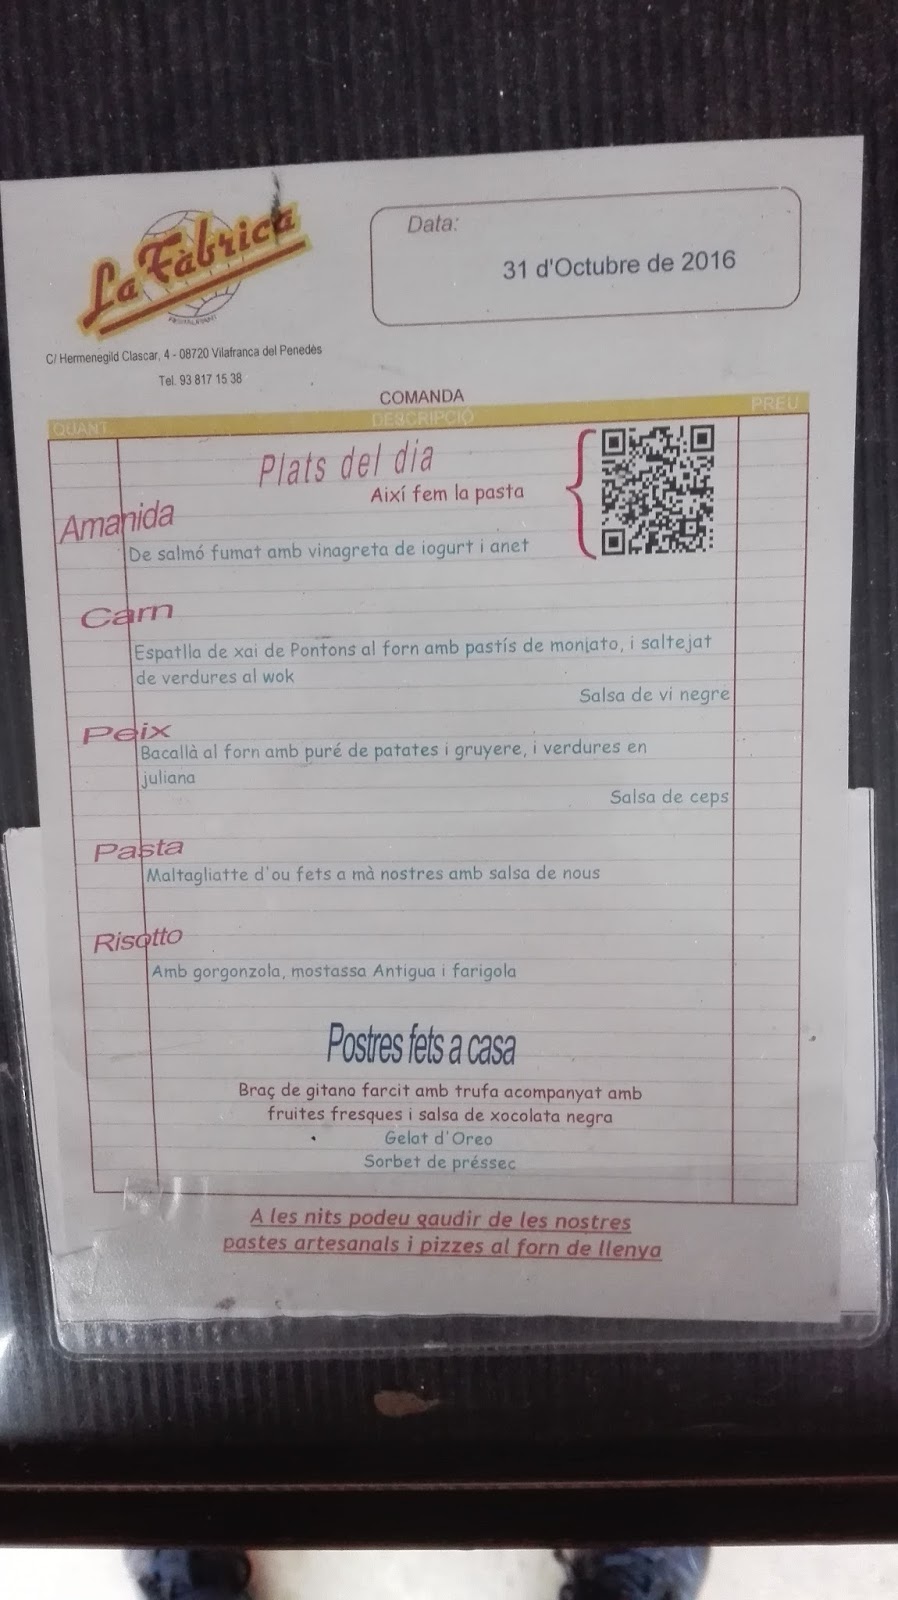 La Fàbrica
RESTAURANT
C/ Hermenegild Clascar, 4 - 08720 Vilafranca del Penedès
Tel. 93 817 15 38
Data:
31 d'Octubre de 2016
COMANDA
QUANT. DESCRIPCIÓ PREU
Plats del dia
Així fem la pasta
Amanida
De salmó fumat amb vinagreta de iogurt i anet
Carn
Espatlla de xai de Pontons al forn amb pastís de moniato, i saltejat
de verdures al wok
Salsa de vi negre
Peix
Bacallà al forn amb puré de patates i gruyere, i verdures en
juliana
Salsa de ceps
Pasta
Maltagliatte d'ou fets a mà nostres amb salsa de nous
Risotto
Amb gorgonzola, mostassa Antigua i farigola
Postres fets a casa
Braç de gitano farcit amb trufa acompanyat amb
fruites fresques i salsa de xocolata negra
Gelat d'Oreo
Sorbet de préssec
A les nits podeu gaudir de les nostres
pastes artesanals i pizzes al forn de llenya